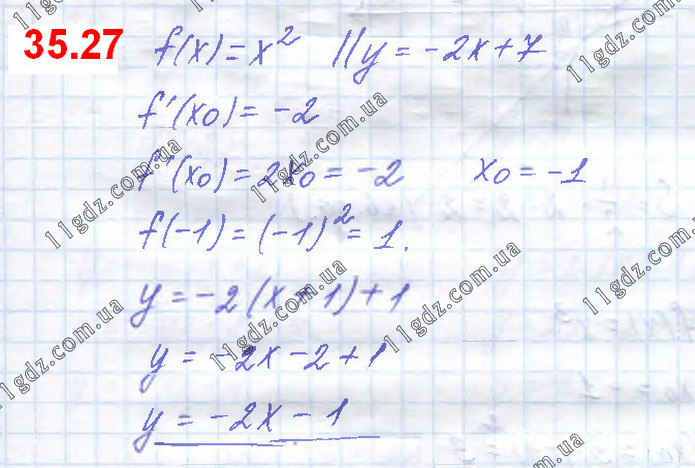 35.27 f(x) = x² || y = -2x + 7
f'(x₀) = -2
f'(x₀) = 2x₀ = -2 x₀ = -1
f(-1) = (-1)² = 1.
y = -2(x + 1) + 1
y = -2x - 2 + 1
y = -2x - 1
11gdz.com.ua
11gdz.com.ua
11gdz.com.ua
11gdz.com.ua
11gdz.com.ua
11gdz.com.ua
11gdz.com.ua
11gdz.com.ua
11gdz.com.ua